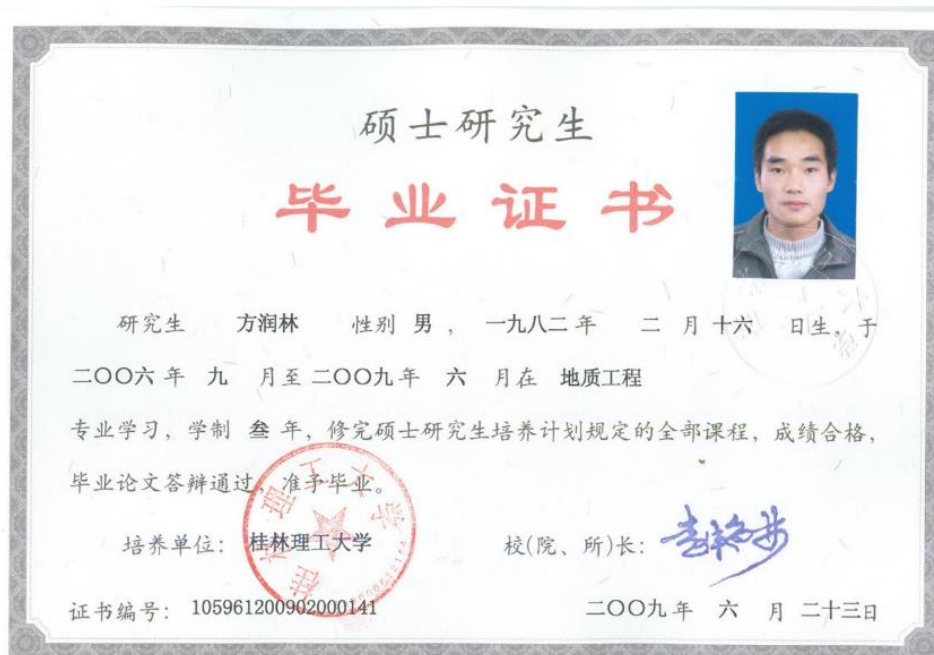 硕士研究生
毕业证书
研究生 方润林 性别 男 , 一九八二 年 二 月 十六 日生, 于
二〇〇六 年 九 月至 二〇〇九 年 六 月在 地质工程
专业学习, 学制 叁 年, 修完硕士研究生培养计划规定的全部课程, 成绩合格,
毕业论文答辩通过, 准予毕业。
培养单位: 桂林理工大学 校(院、所)长:
证书编号: 105961200902000141 二〇〇九 年 六 月 二十三日
桂林理工大学